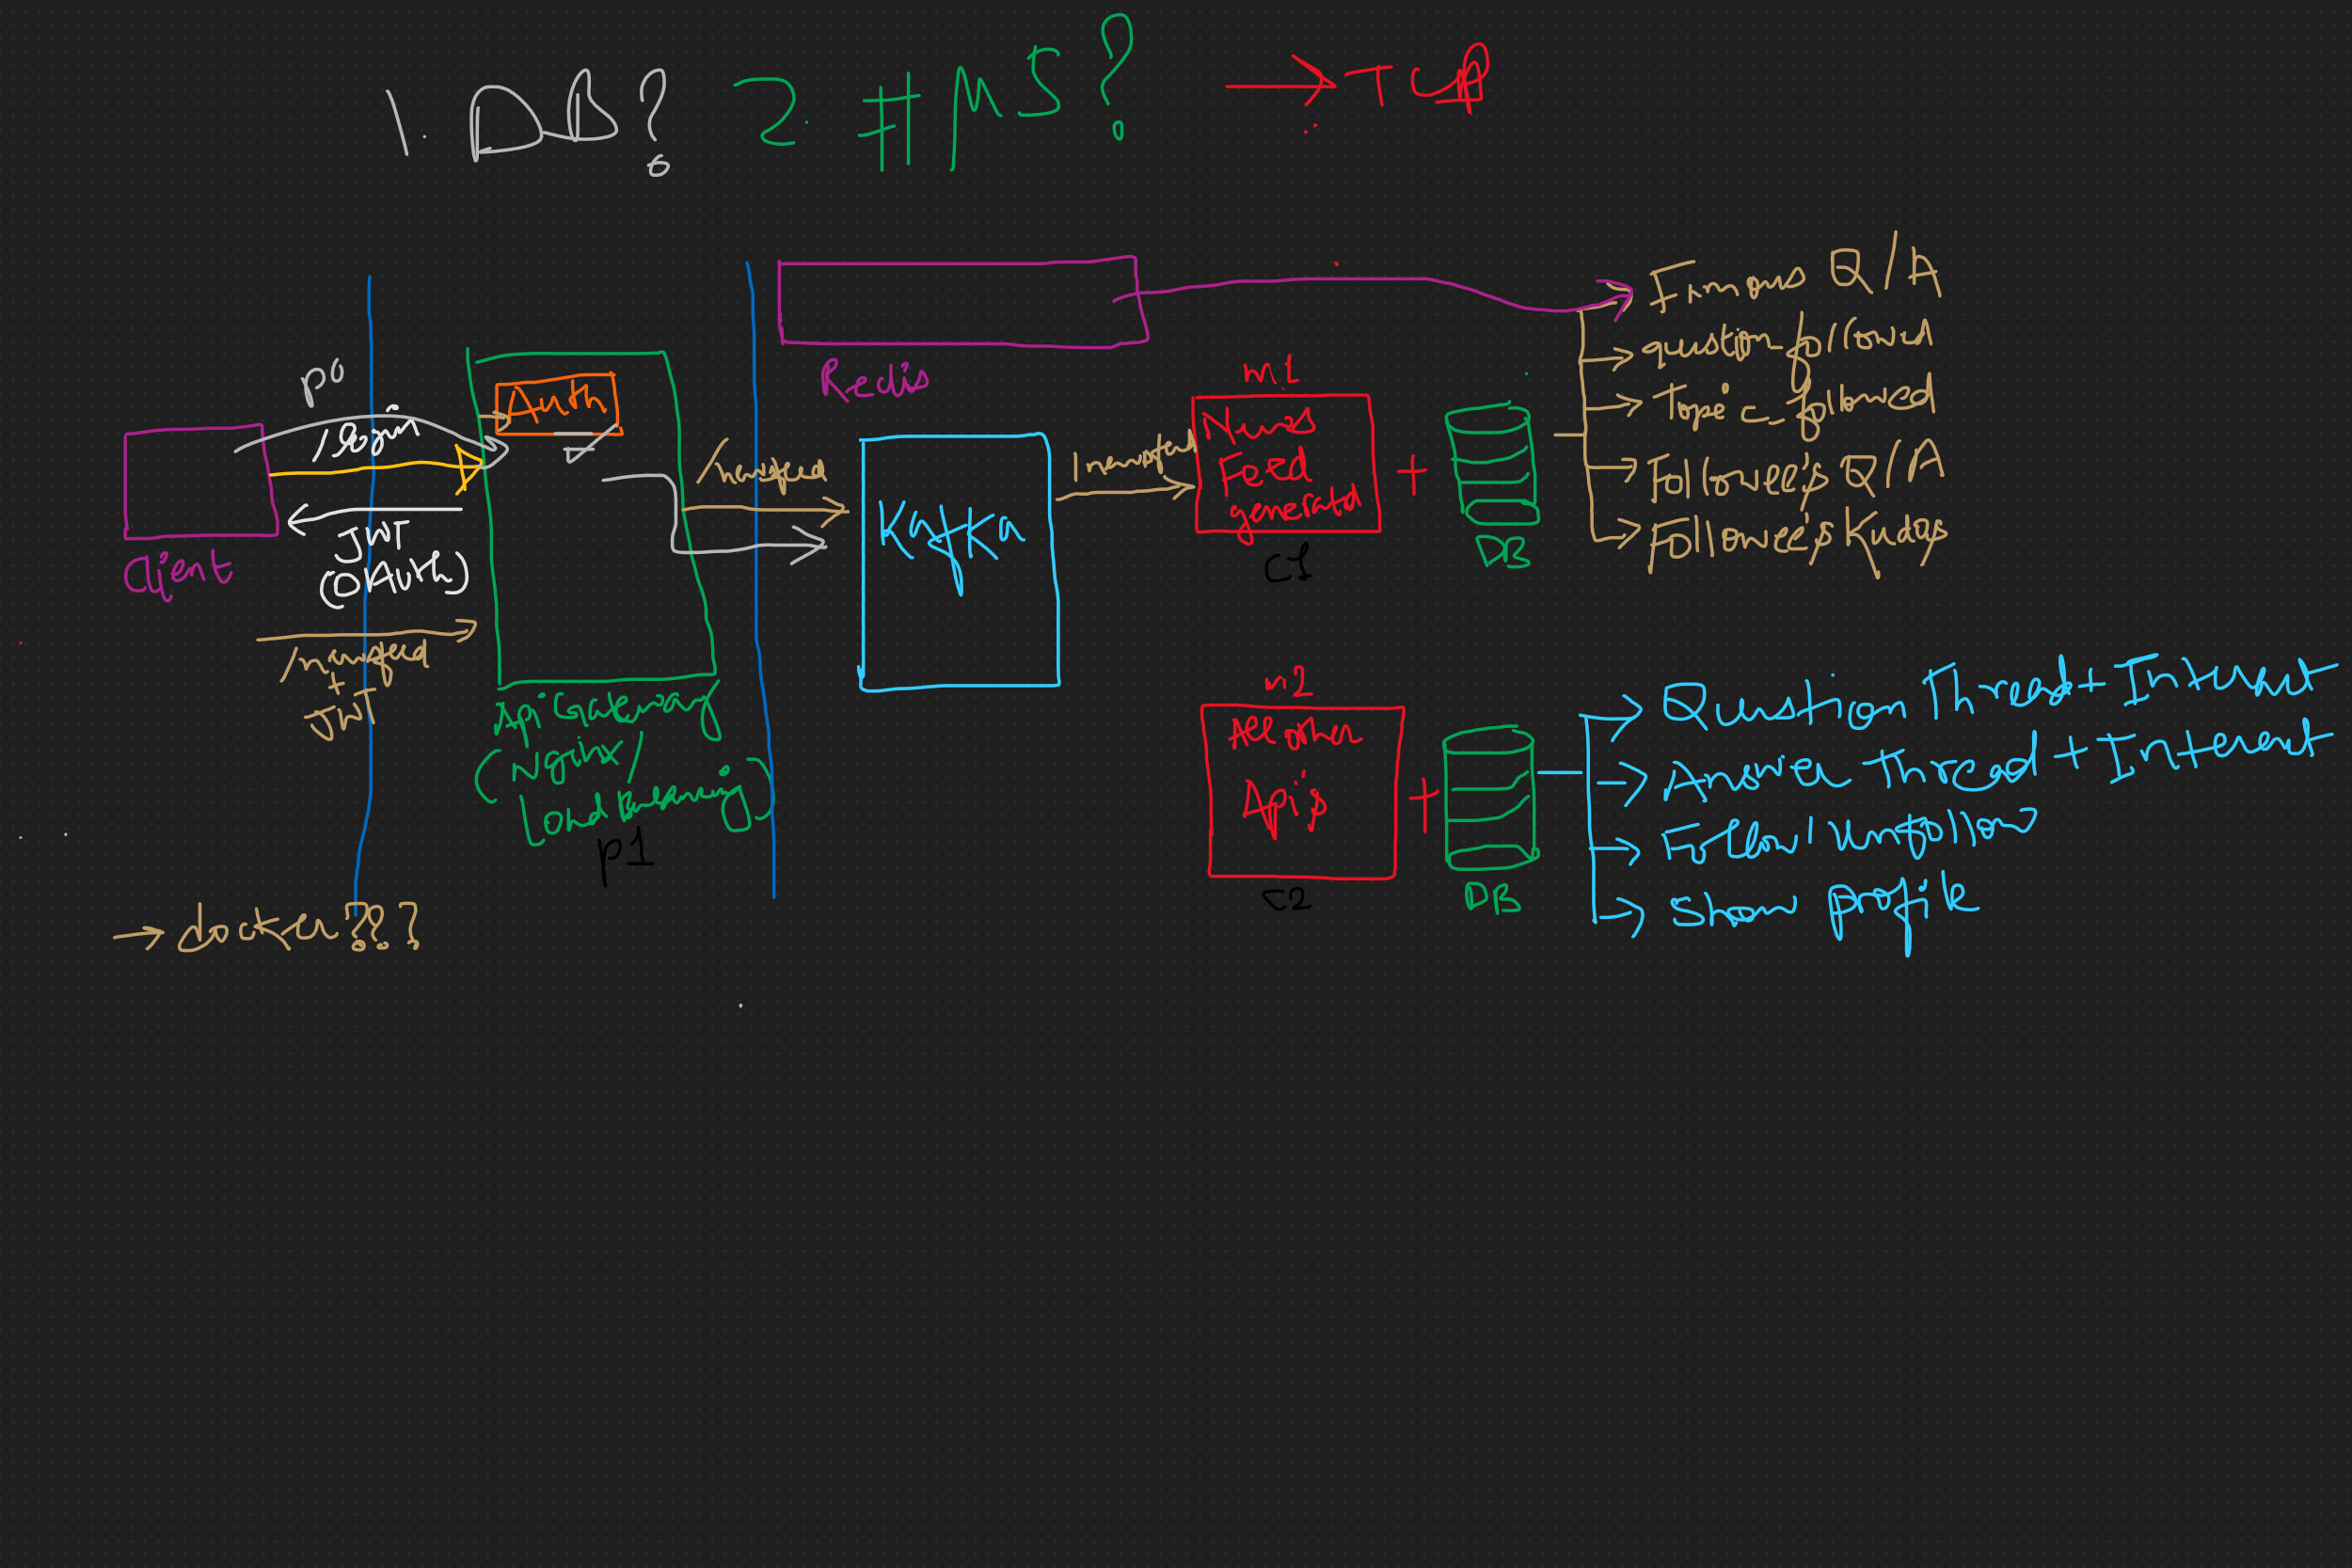 1. DB?
2. # MS?
→ TCP
Redis
p0
/login
Auth
JWT
(OAuth)
Client
/newsfeed
+
JWT
Api Gateway
(Nginx/
Load Balancing)
p1
/newsfeed
Kafka
/newsfeed
m1
News
Feed
generated
C1
+
DB
Famous Q/A
question_followed
Topic_followed
Followee's Q/A
Followee's Kudos
m2
All other
Api's
C2
+
DB
Question Thread + Interest
Answer thread + Interest
Follow/Unfollow
Show profile
→ docker???